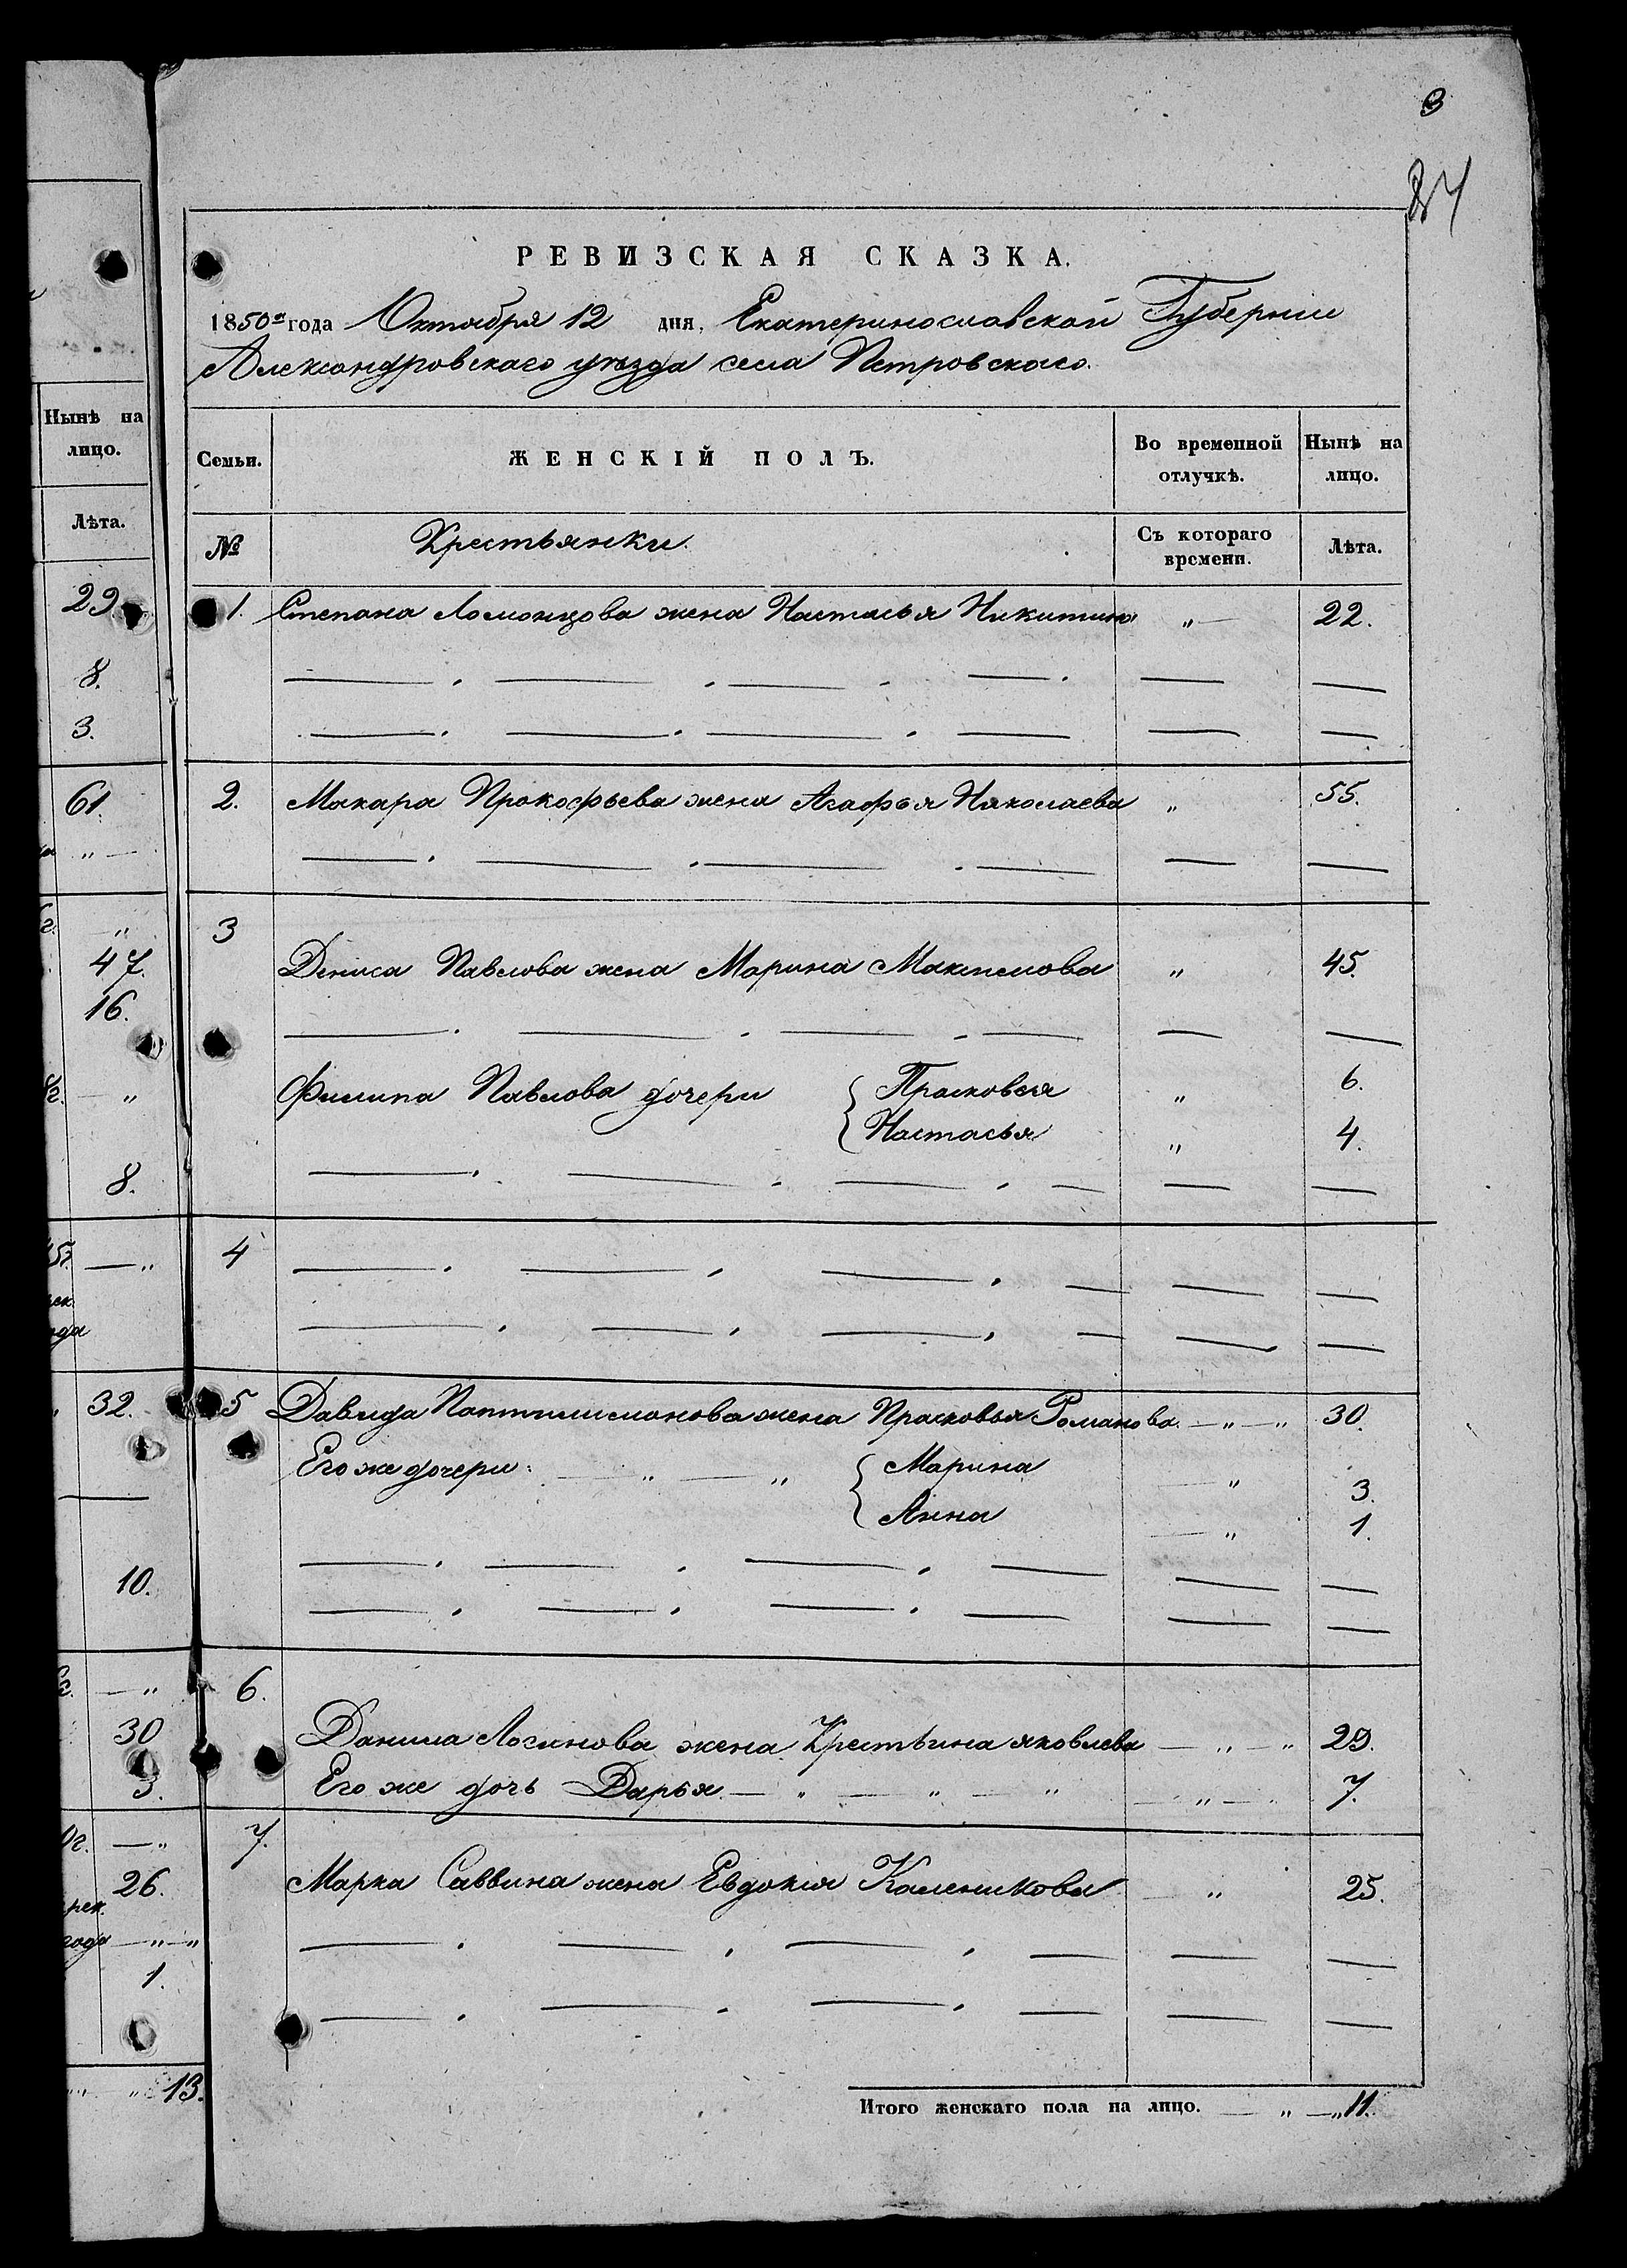 3
84
РЕВИЗСКАЯ СКАЗКА.
1850го года Октября 12 дня, Екатеринославской Губернии
Александровскаго уѣзда села Петровскаго.
Семьи. ЖЕНСКІЙ ПОЛЪ. Во временной отлучкѣ. Нынѣ на лицо.
№ Крестьянки. Съ котораго времени. Лѣта.
1. Степана Ломонцова жена Настасья Никитина " 22.
2. Макара Прокофьева жена Агафья Николаева " 55.
3
Дениса Павлова жена Марина Максимова " 45.
Филипа Павлова дочери { Прасковья " 6.
Настасья " 4.
4
5 Давида жена Прасковья Романова " " 30.
Его же дочери: " " { Марина " 3.
Анна " 1.
6.
Данила Логинова жена Крестьина яковлева " " 29.
Его же дочь Дарья " " " " 7.
7.
Марка Саввина жена Евдокия Каленикова " 25.
Итого женскаго пола на лицо. " " 11.
Нынѣ на
лицо.
Лѣта.
29
8.
3.
61.
"
"
47.
16.
"
8.
"
32.
10.
"
30
3.
"
26.
года " "
1.
13.